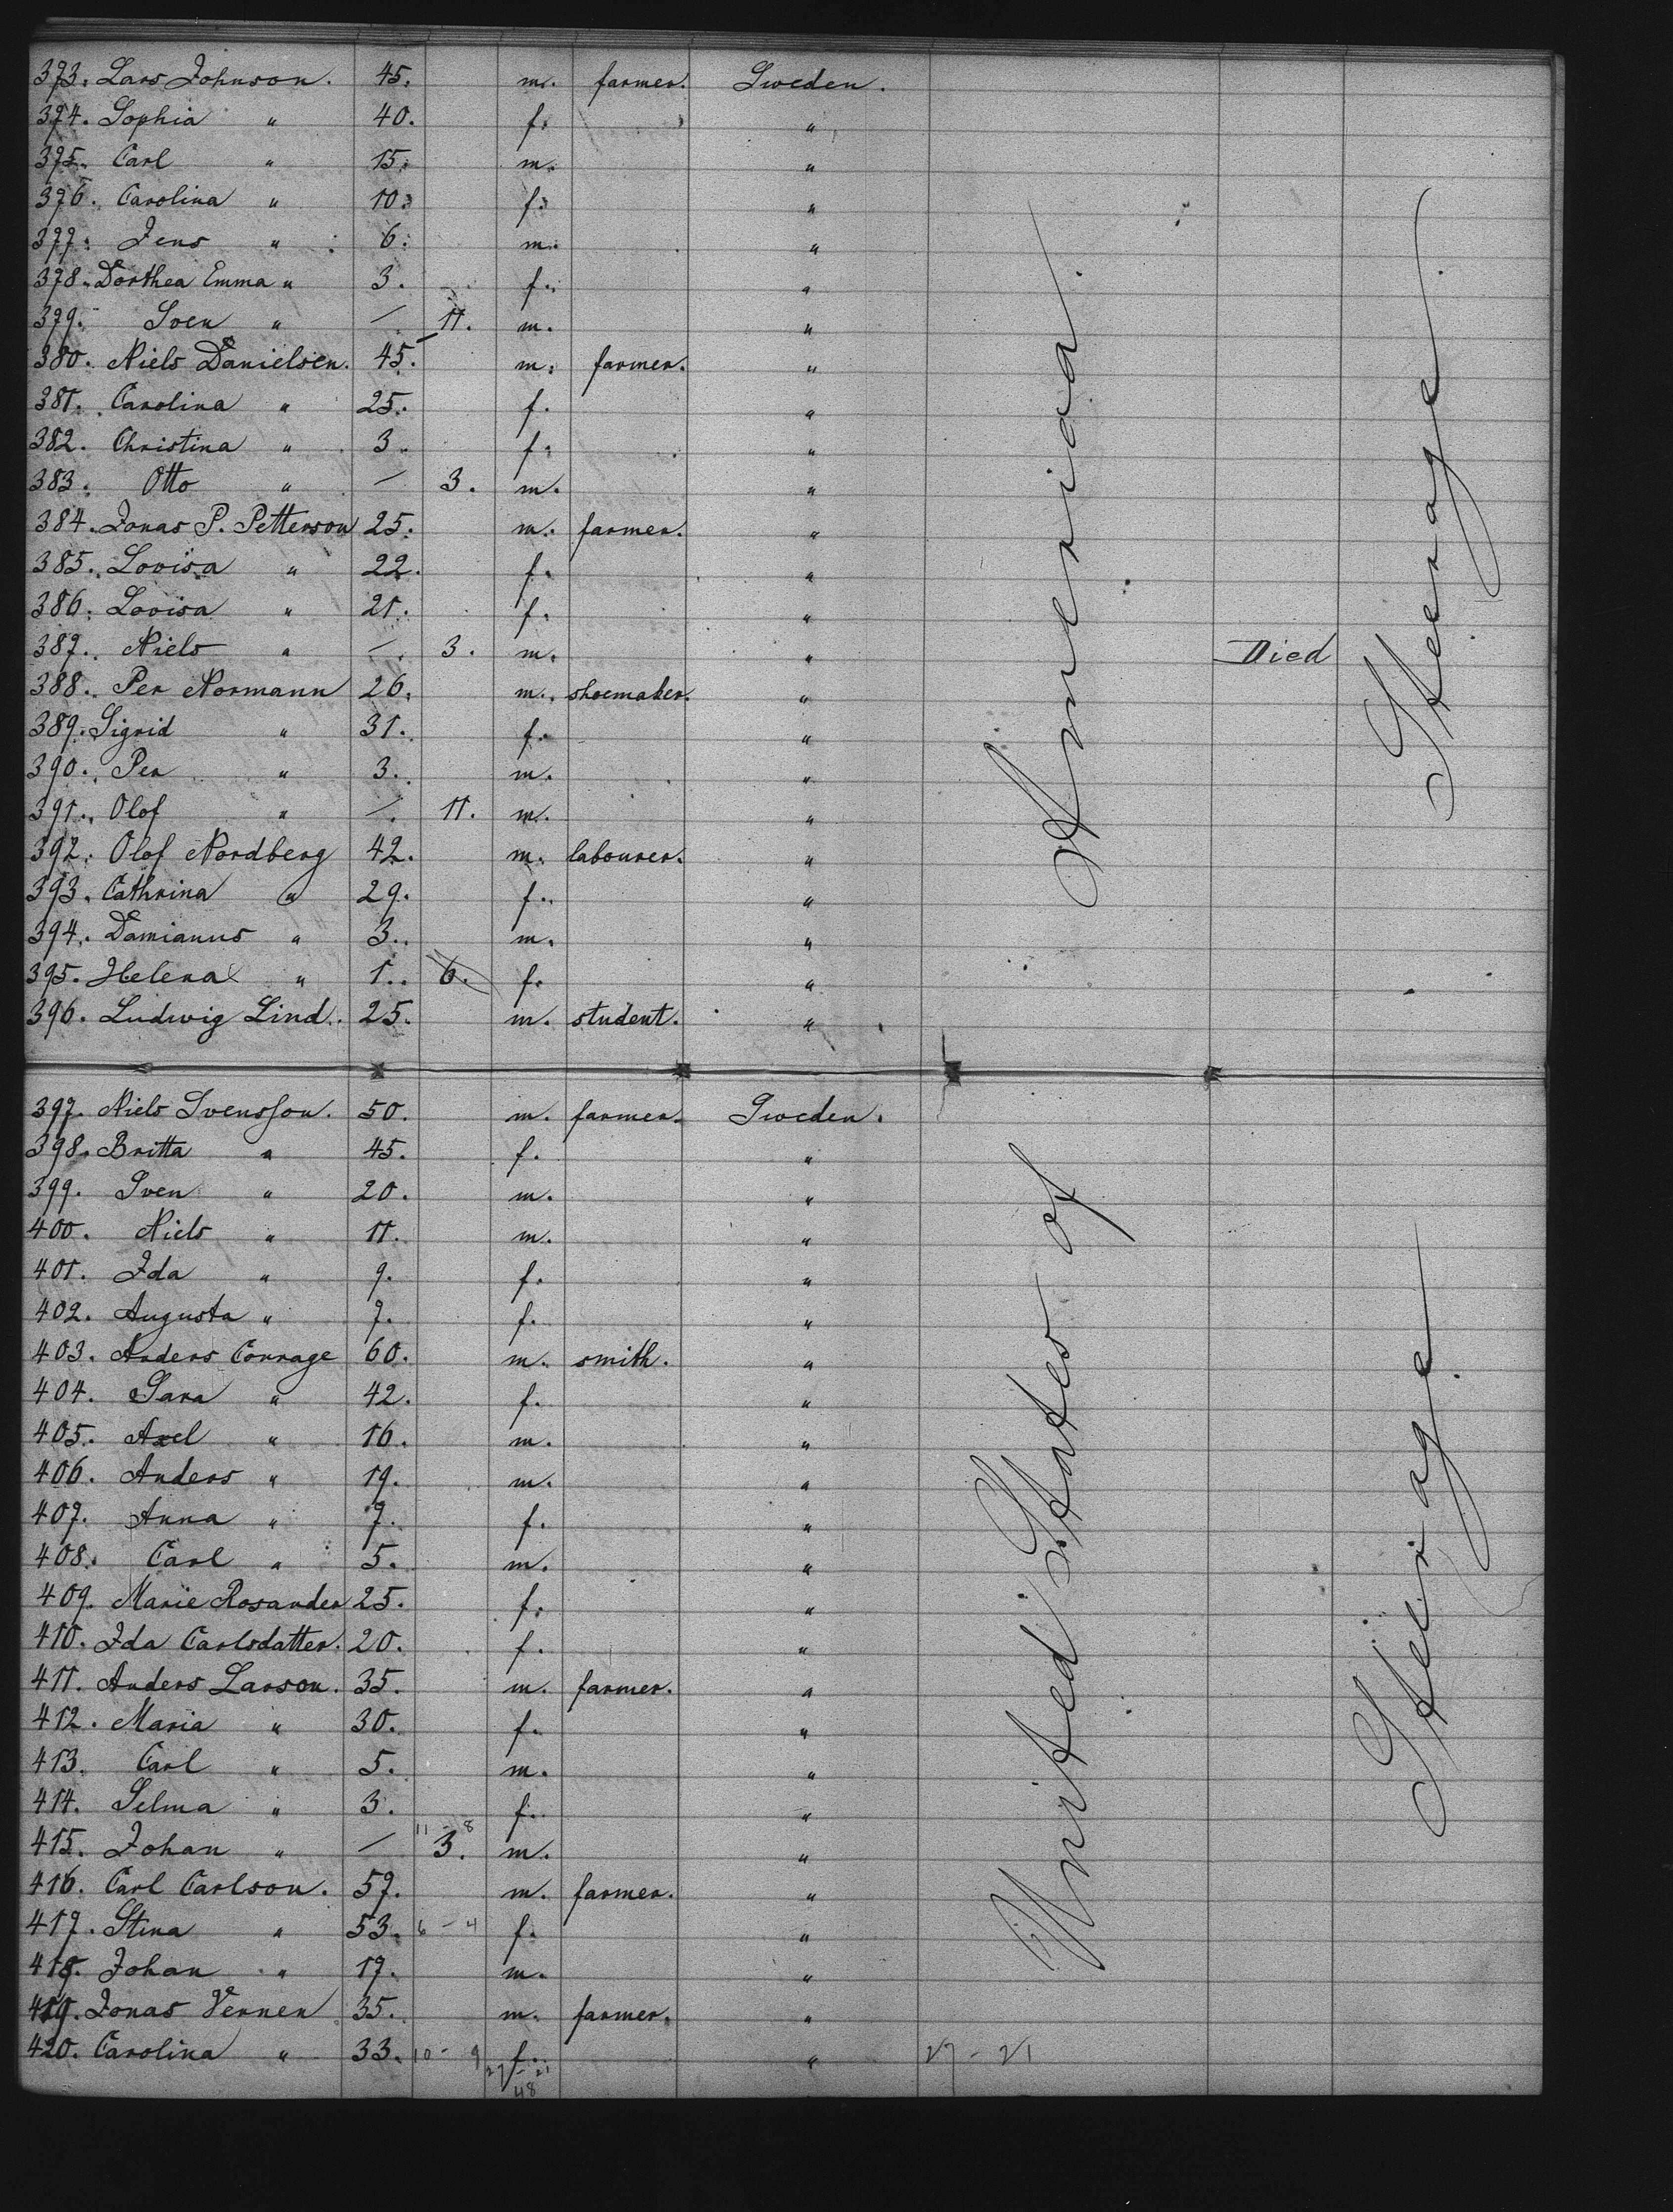 373. Lars Johnson. 45. m. farmer. Sweden.
374. Sophia " 40. f. "
375. Carl " 15. m. "
376. Carolina " 10. f. "
377. Jens " 6. m. "
378. Dorthea Emma " 3. f. "
379. Sven " — 11. m. "
380. Niels Danielsen. 45. m. farmer. "
381. Carolina " 25. f. "
382. Christina " 3. f. "
383. Otto " — 3. m. "
384. Jonas P. Petterson 25. m. farmer. "
385. Lovisa " 22. f. "
386. Lovisa " 21. f. "
387. Niels " — 3. m. " Died
388. Per Normann 26. m. shoemaker. "
389. Sigrid " 31. f. "
390. Per " 3. m. "
391. Olof " — 11. m. "
392. Olof Nordberg 42. m. labourer. "
393. Cathrina " 29. f. "
394. Damianus " 3. m. "
395. Helena " 1. 6. f. "
396. Ludwig Lind. 25. m. student. "
America.
Steerage.
397. Niels Svensson. 50. m. farmer. Sweden.
398. Britta " 45. f. "
399. Sven " 20. m. "
400. Niels " 11. m. "
401. Ida " 9. f. "
402. Augusta " 7. f. "
403. Anders Corrage 60. m. smith. "
404. Sara " 42. f. "
405. Axel " 16. m. "
406. Anders " 19. m. "
407. Anna " 7. f. "
408. Carl " 5. m. "
409. Marie Rosander 25. f. "
410. Ida Carlsdatter. 20. f. "
411. Anders Larson. 35. m. farmer. "
412. Maria " 30. f. "
413. Carl " 5. m. "
414. Selma " 3. f. "
11 - 8
415. Johan " — 3. m. "
416. Carl Carlson. 57. m. farmer. "
417. Stina " 53. 6 - 4 f. "
418. Johan " 17. m. "
419. Jonas Verner 35. m. farmer. "
420. Carolina " 33. 10 - 9 f. " 27 - 21
27 - 21
48
United States of
Steirage.